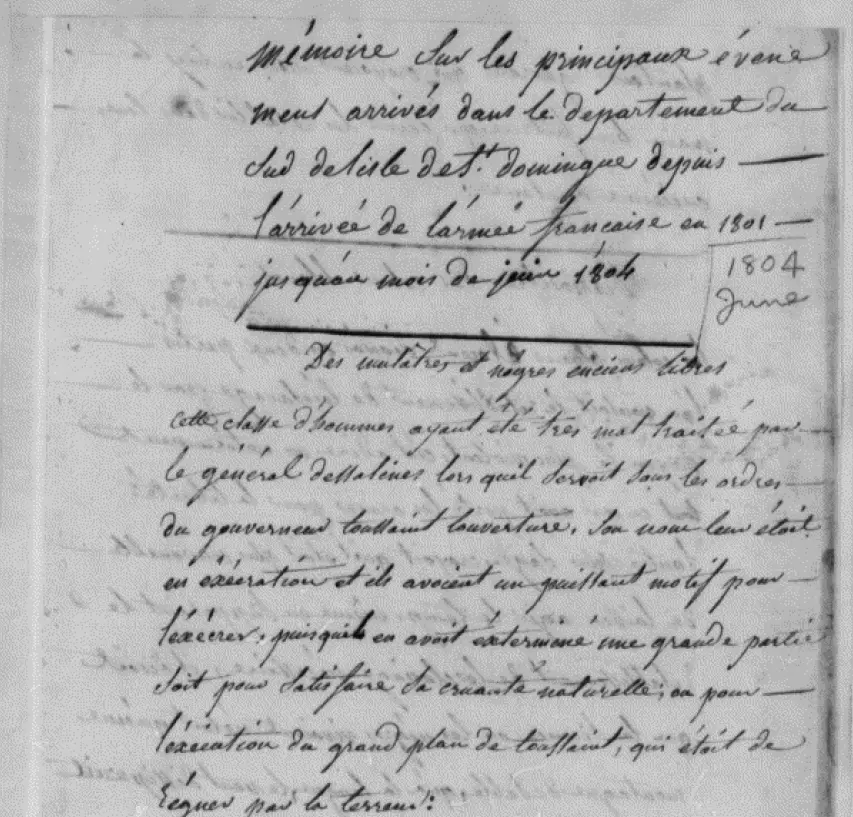 Mémoire sur les principaux évene
ment arrivés dans le departement du
Sud de l'isle de St. domingue depuis
l'arrivée de l'armée francaise en 1801
jusqu'au mois de juin 1804
1804
June
Des mulatres et négres anciens libres
cette classe d'hommes ayant été trés mal traiteé par
le général dessalines lorsquil servoit sous les ordres
du gouverneur toussaint louverture, son nom leur étoit
en éxécration et ils avoient un puissant motif pour
l'éxécrer, puisquil en avoit éxterminé une grande partie
soit pour satisfaire sa cruauté naturelle, ou pour
l'éxécution du grand plan de toussaint, qui étoit de
régner par la terreur: